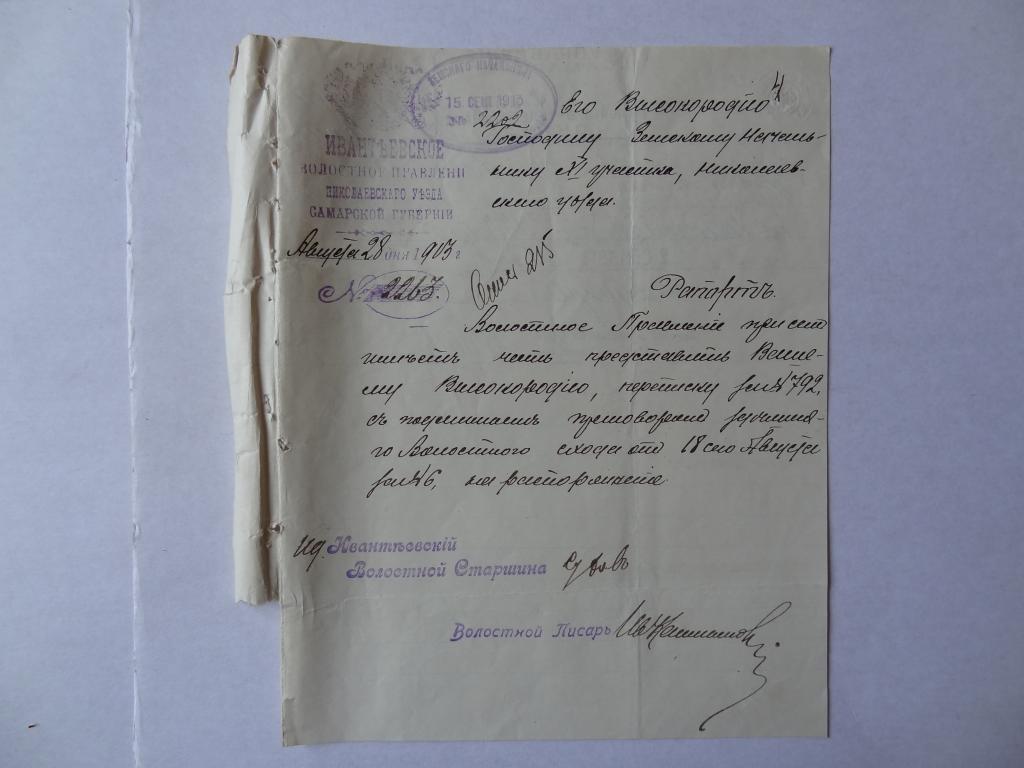 4
ЗЕМСКАГО НАЧАЛЬНИКА
15 СЕН 1913
2202
Его Высокородію
Господину Земскому Началь-
нику XI участка, Николаев-
скаго уѣзда.
ИВАНТѢЕВСКОЕ
ВОЛОСТНОЕ ПРАВЛЕНІЕ
НИКОЛАЕВСКАГО УѢЗДА
САМАРСКОЙ ГУБЕРНІИ
Августа 28 дня 1913 г
№ 2263.
215
Рапортъ.
Волостное Правленіе при семъ
имѣетъ честь представить Ваше-
му Высокородію, переписку за № 792,
съ подлиннымъ приговоромъ здѣшня-
го Волостного схода отъ 18 сего Августа
за № 6, на распоряженіе
Ид. Ивантѣевскій
Волостной Старшина
Волостной Писарь